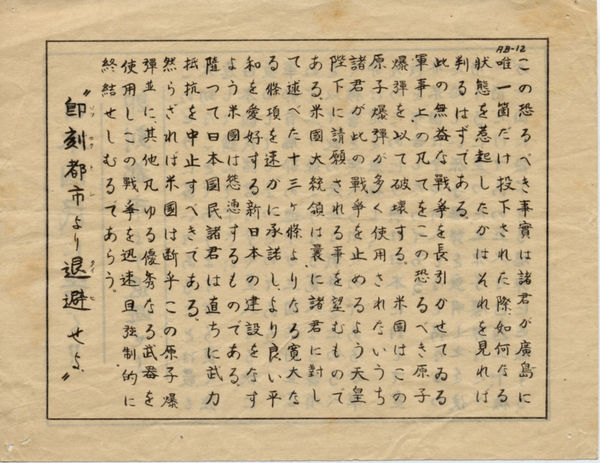 AB-12
この恐るべき事實は諸君が廣島に
唯一箇だけ投下された際、如何なる
狀態を惹起したかはそれを見れば
判るはずである。
此の無益な戰爭を長引かせてゐる
軍事上の凡てをこの恐るべき原子
爆彈を以て破壞する。米国はこの
原子爆彈が多く使用されないうち
諸君が此の戰爭を止めるよう天皇
陛下に請願される事を望むもので
ある。米國大統領は曩に諸君に對し
て述べた十三ヶ條よりなる寛大な
る條項を速かに承諾し、より良い平
和を愛好する新日本の建設をなす
よう米國は慫慂するものである。
隨つて日本國民諸君は直ちに武力
抵抗を中止すべきである。
然らざれば米國は斷乎この原子爆
彈並に其他凡ゆる優秀なる武器を
使用しこの戰爭を迅速且強制的に
終結せしむるであらう。
"即刻都市より退避せよ"